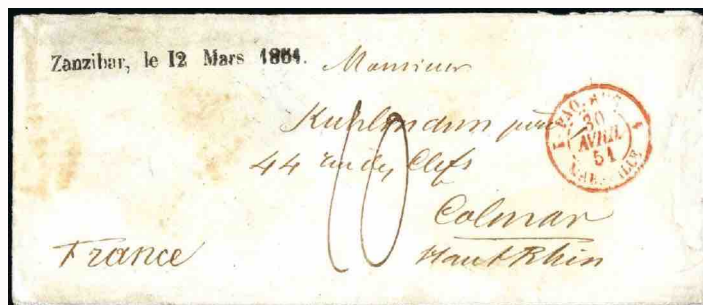 Zanzibar, le 12 Mars 1851.
Monsieur
Kuhlmann père
44 rue des Clefs
10
Colmar
Haut Rhin
France
30
AVRIL
51
MARSEILLE